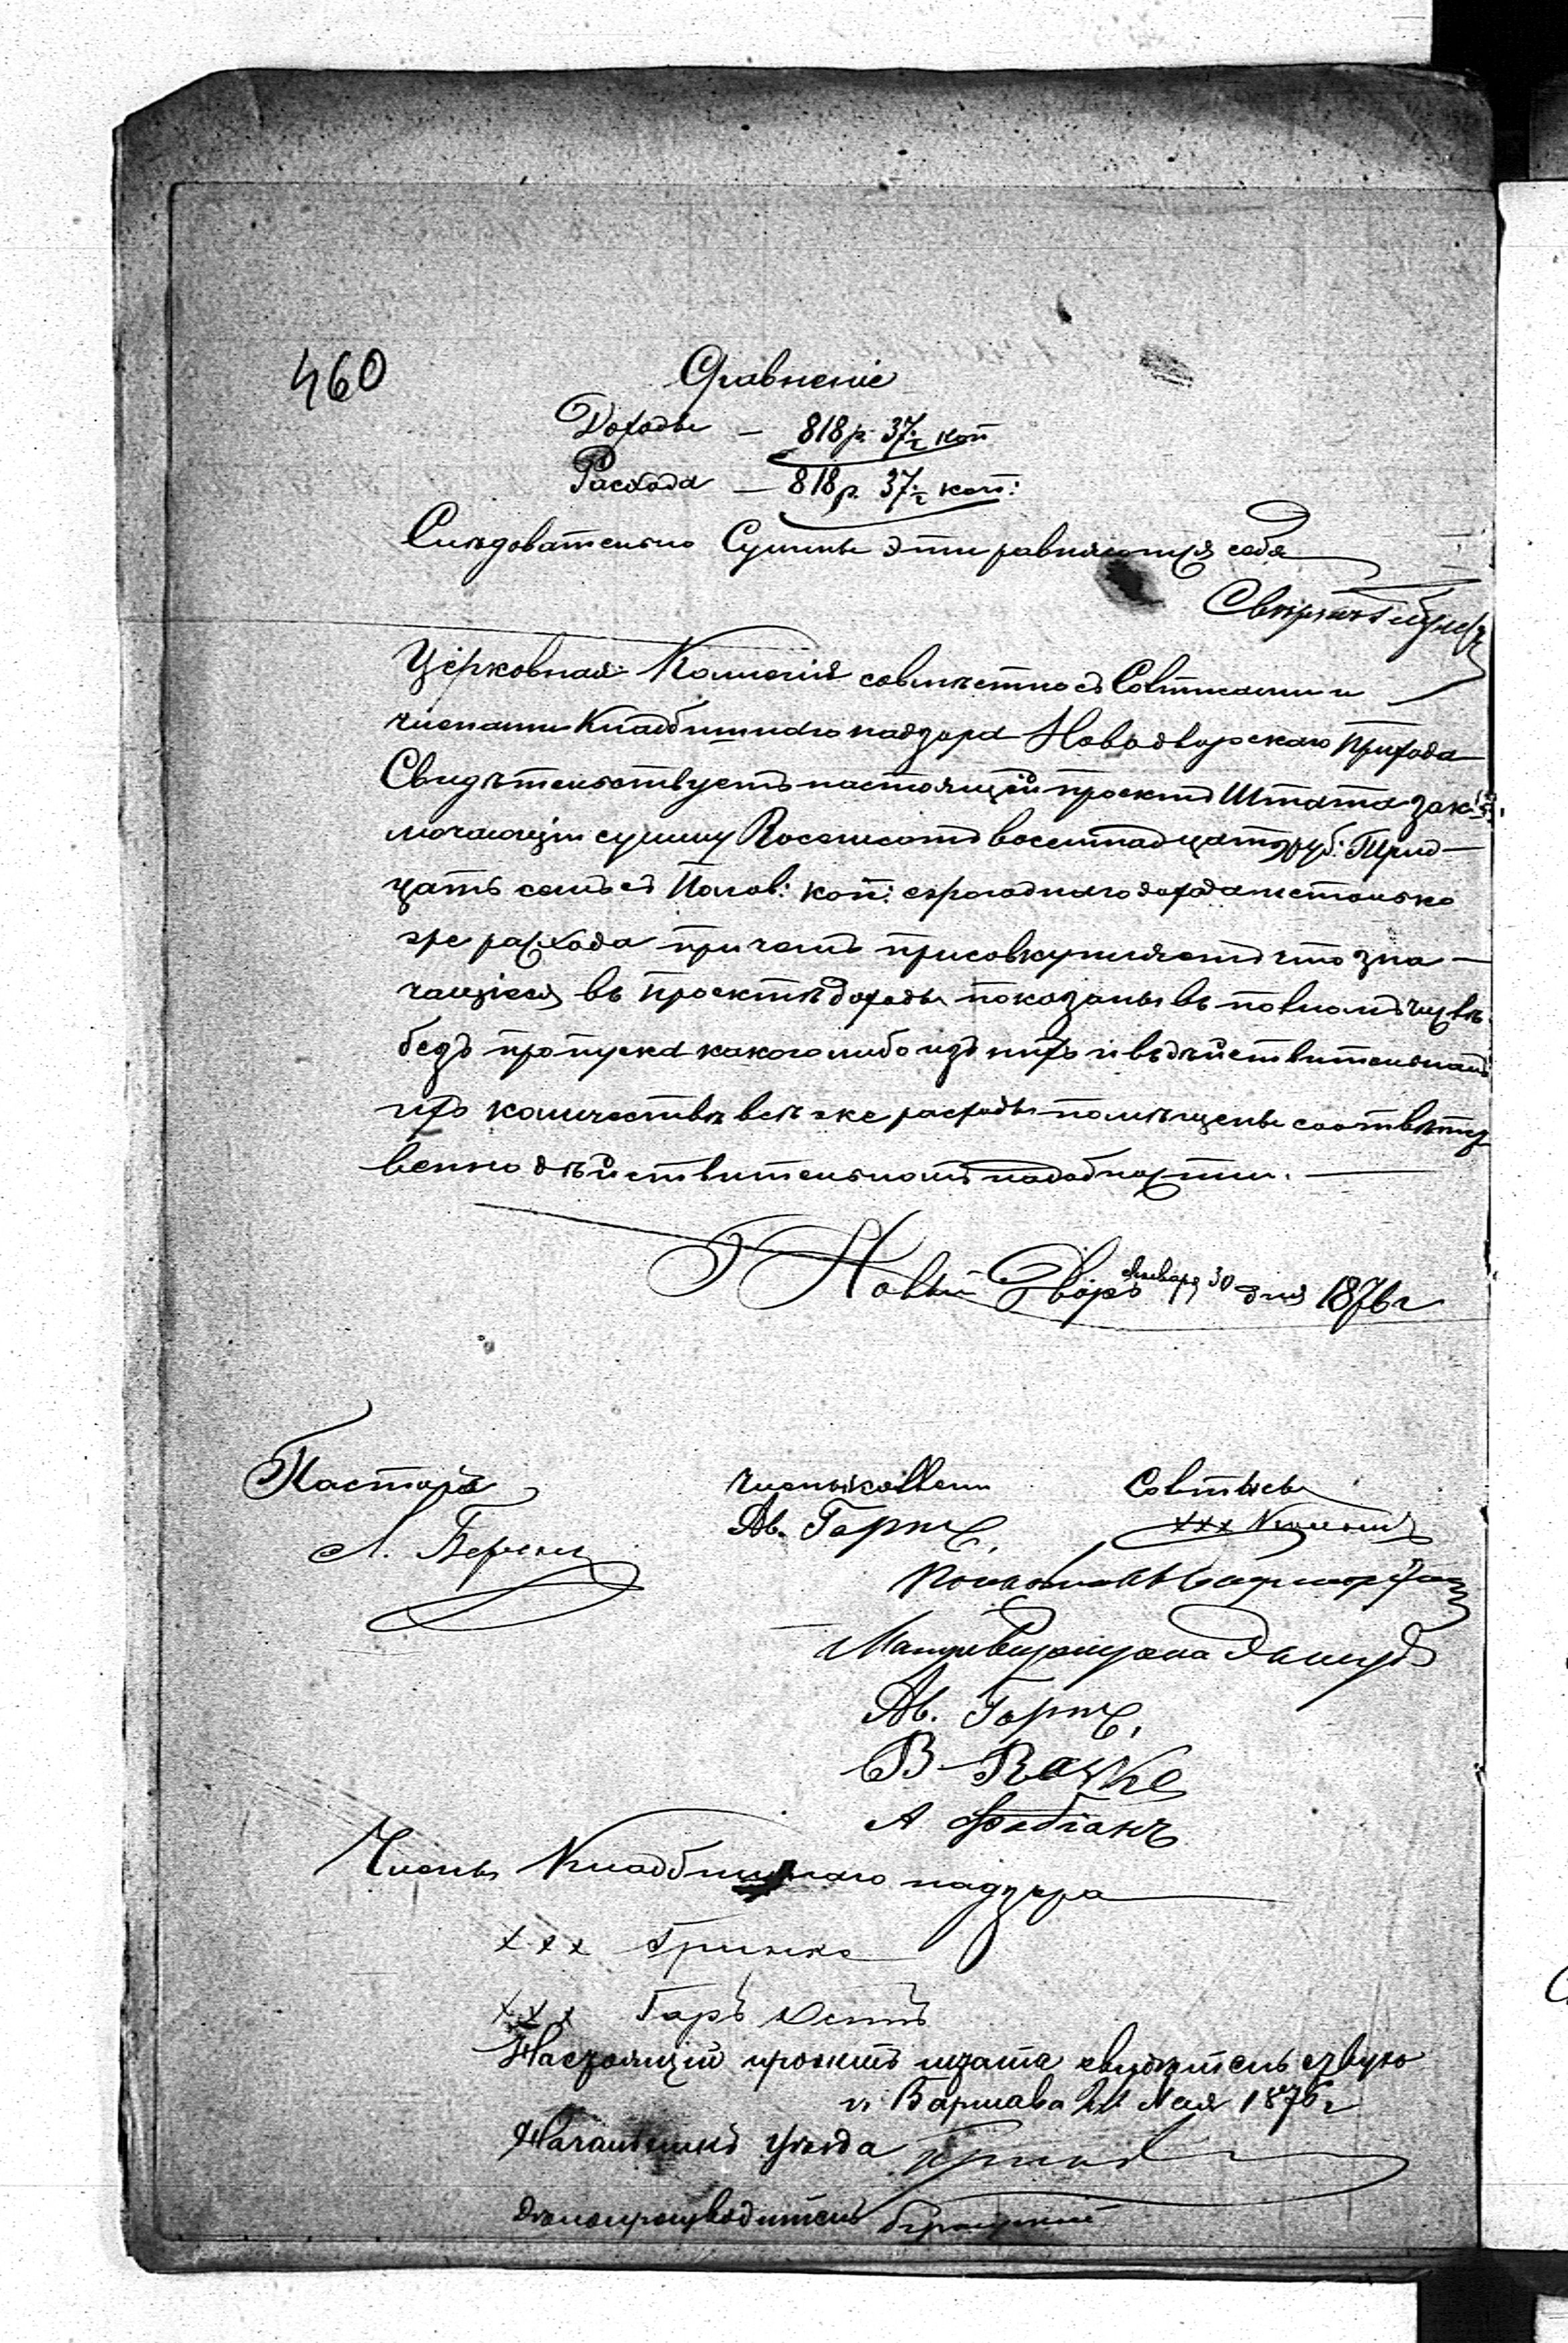 460
Сравненіе
Доходы — 818 р. 37½ коп
Расхода — 818 р. 37½ коп:
Следовательно Суммы эти равняются себя
Свѣрялъ
Церковная Коллегія совмѣстно съ Совтысами и
членами Кладбищнаго надзора Новодворскаго Прихода
Свидѣтельствуетъ настоящій проектъ Штата зак-
лючающій сумму Восемьсотъ восемнадцать руб: Трид—
цать семь съ Полов: коп: ежегоднаго дохода и столько
же расхода причемъ присовкупляетъ что зна—
чащіеся въ проектѣ доходы показаны въ полномъ числѣ
безъ пропуска какого либо изъ нихъ и въ дѣйствительномъ
ихъ количествѣ всѣ же расходы помѣщены соотвѣтст
венно дѣйствительной надобности. —
Г Новый Дворъ Января 30 дня 1876 г
Пасторъ
Члены Коллегіи
Совтысы
Л.
Ав. Гертц.
xxx
Ав. Гертц.
В Рацке
А Фабіанъ
Члены Кладбищнаго надзора
xxx
xxx
Настоящій проектъ штата свидѣтельствую
г. Варшава Мая 1876 г
Начальникъ уѣзда
Дѣлопроизводитель